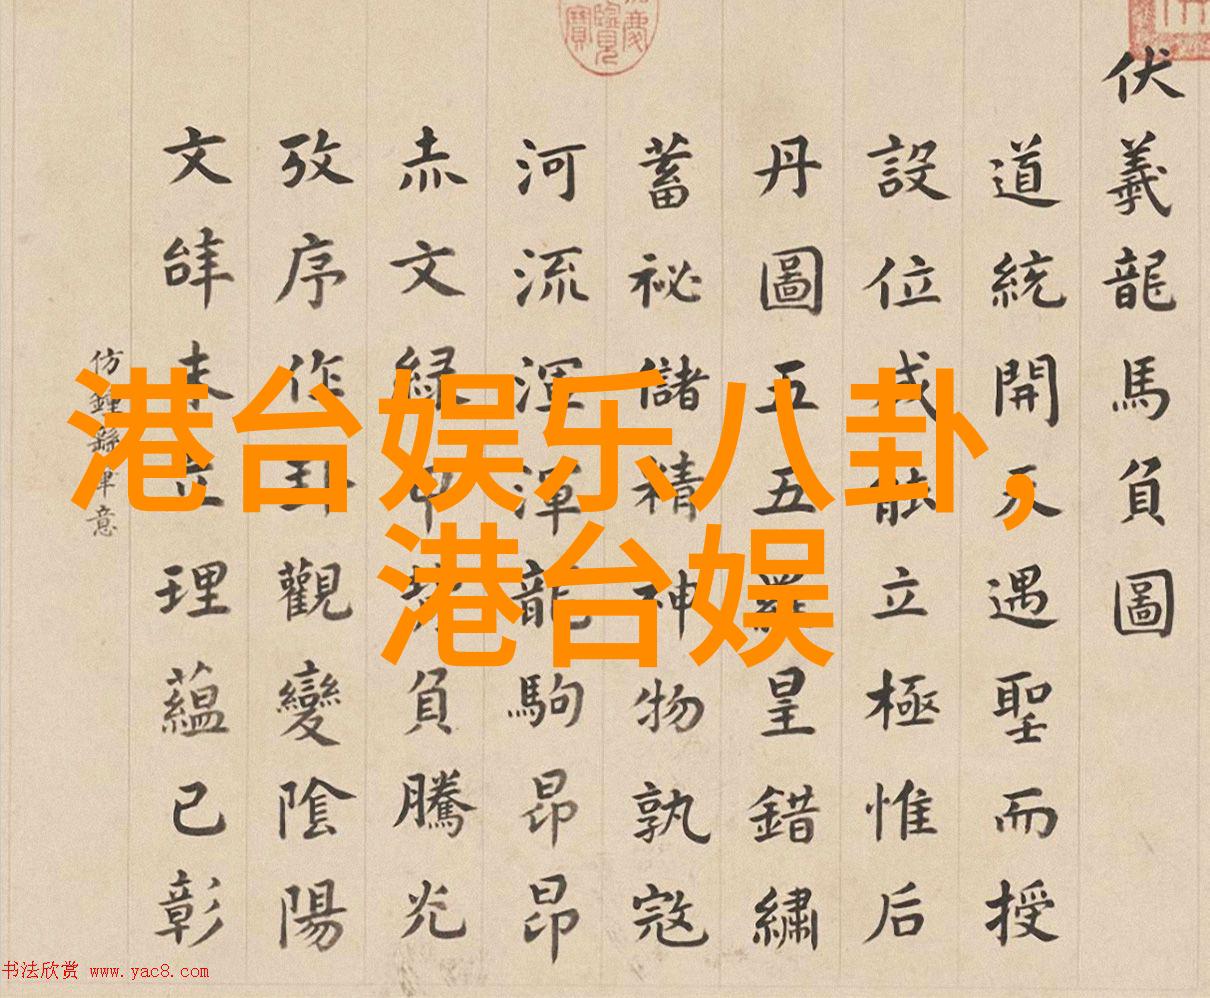 伏羲龍馬負圖
道統開天遇聖而授
設位成能立極惟后
丹圖五五羅皇錯繡
蓄祕儲精神物孰寇
河流渾渾龍駒昂昂
赤文緑甲 負騰光
攷序作卦觀變陰陽
文辞未立理蘊已彰
仿鍾繇筆意
港台娱乐八卦，
港台娱
书法欣赏 www.yac8.com